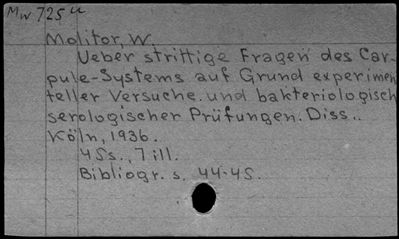 Mw 725 u
Molitor, W.
Ueber strittige Fragen des Car-
pule-Systems auf Grund experimen
teller Versuche und bakteriologisch
serologischer Prüfungen. Diss..
Köln, 1936.
45s., 7 ill.
Bibliogr. s. 44-45.